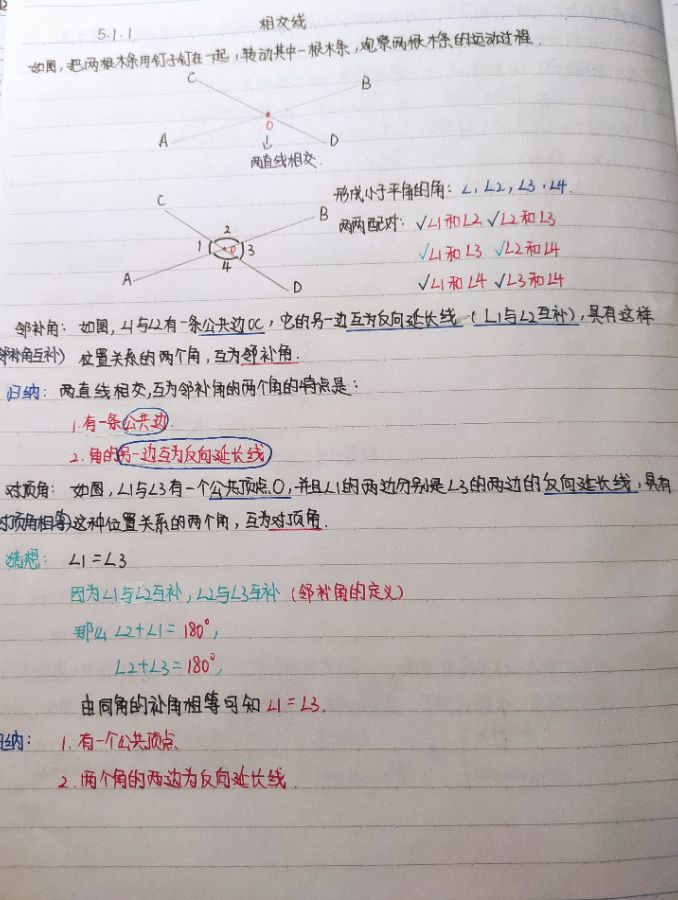 5.1.1 相交线
如图,把两根木条用钉子钉在一起,转动其中一根木条,观察两根木条的运动过程.
C B
O
A D
↓
两直线相交.
形成小于平角的角:∠1,∠2,∠3,∠4.
C
B
两两配对:√∠1和∠2 √∠2和∠3
2
1 O 3
4
√∠1和∠3 √∠2和∠4
A D
√∠1和∠4 √∠3和∠4
邻补角:如图,∠1与∠2有一条公共边OC,它的另一边互为反向延长线(∠1与∠2互补),具有这样
邻补角互补) 位置关系的两个角,互为邻补角.
归纳:两直线相交,互为邻补角的两个角的特点是:
1.有一条公共边.
2.角的另一边互为反向延长线
对顶角:如图,∠1与∠3有一个公共顶点O,并且∠1的两边分别是∠3的两边的反向延长线,具有
对顶角相等)这种位置关系的两个角,互为对顶角.
猜想:∠1=∠3
因为∠1与∠2互补,∠2与∠3互补(邻补角的定义)
那么∠2+∠1=180°,
∠2+∠3=180°,
由同角的补角相等可知∠1=∠3.
归纳:1.有一个公共顶点、
2.两个角的两边为反向延长线.